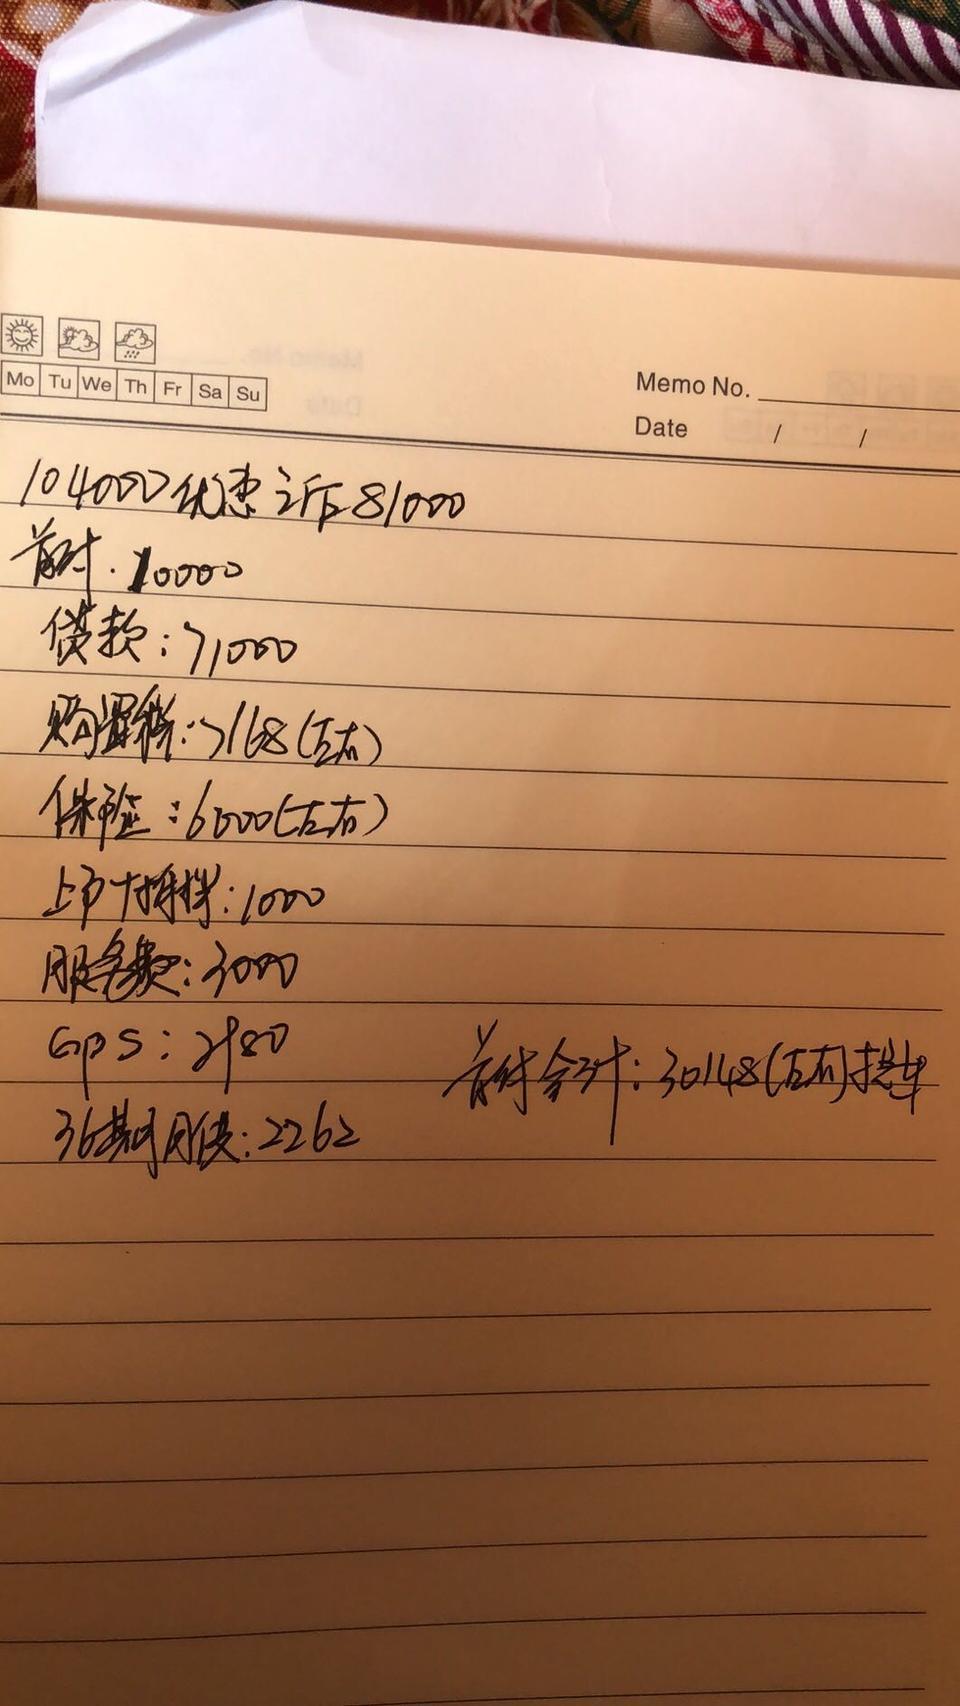 Mo Tu We Th Fr Sa Su
Memo No.
Date / /
104000优惠之后81000
首付.10000
贷款:71000
购置税:7168(左右)
保险:6000(左右)
上户+抵押:1000
服务费:3000
GPS:2980
首付合计:30148(左右)提车
36期月供:2262